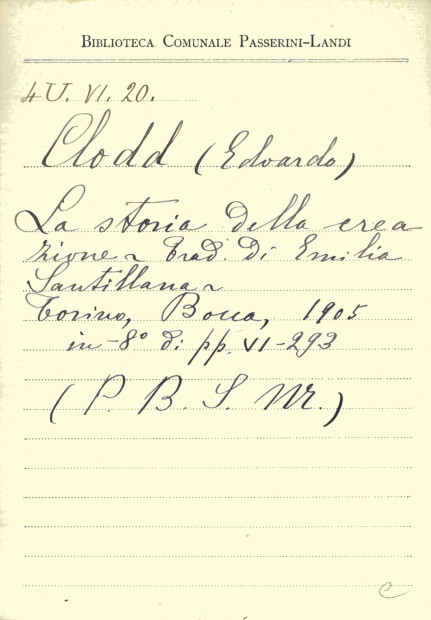 BIBLIOTECA COMUNALE PASSERINI-LANDI
4U. VI. 20.
Clodd (Edoardo)
La storia della crea
zione ~ Trad. di Emilia
Santillana ~
Torino, Bocca, 1905
in-8° di pp. VI-293
(P. B. S. Mr.)
C